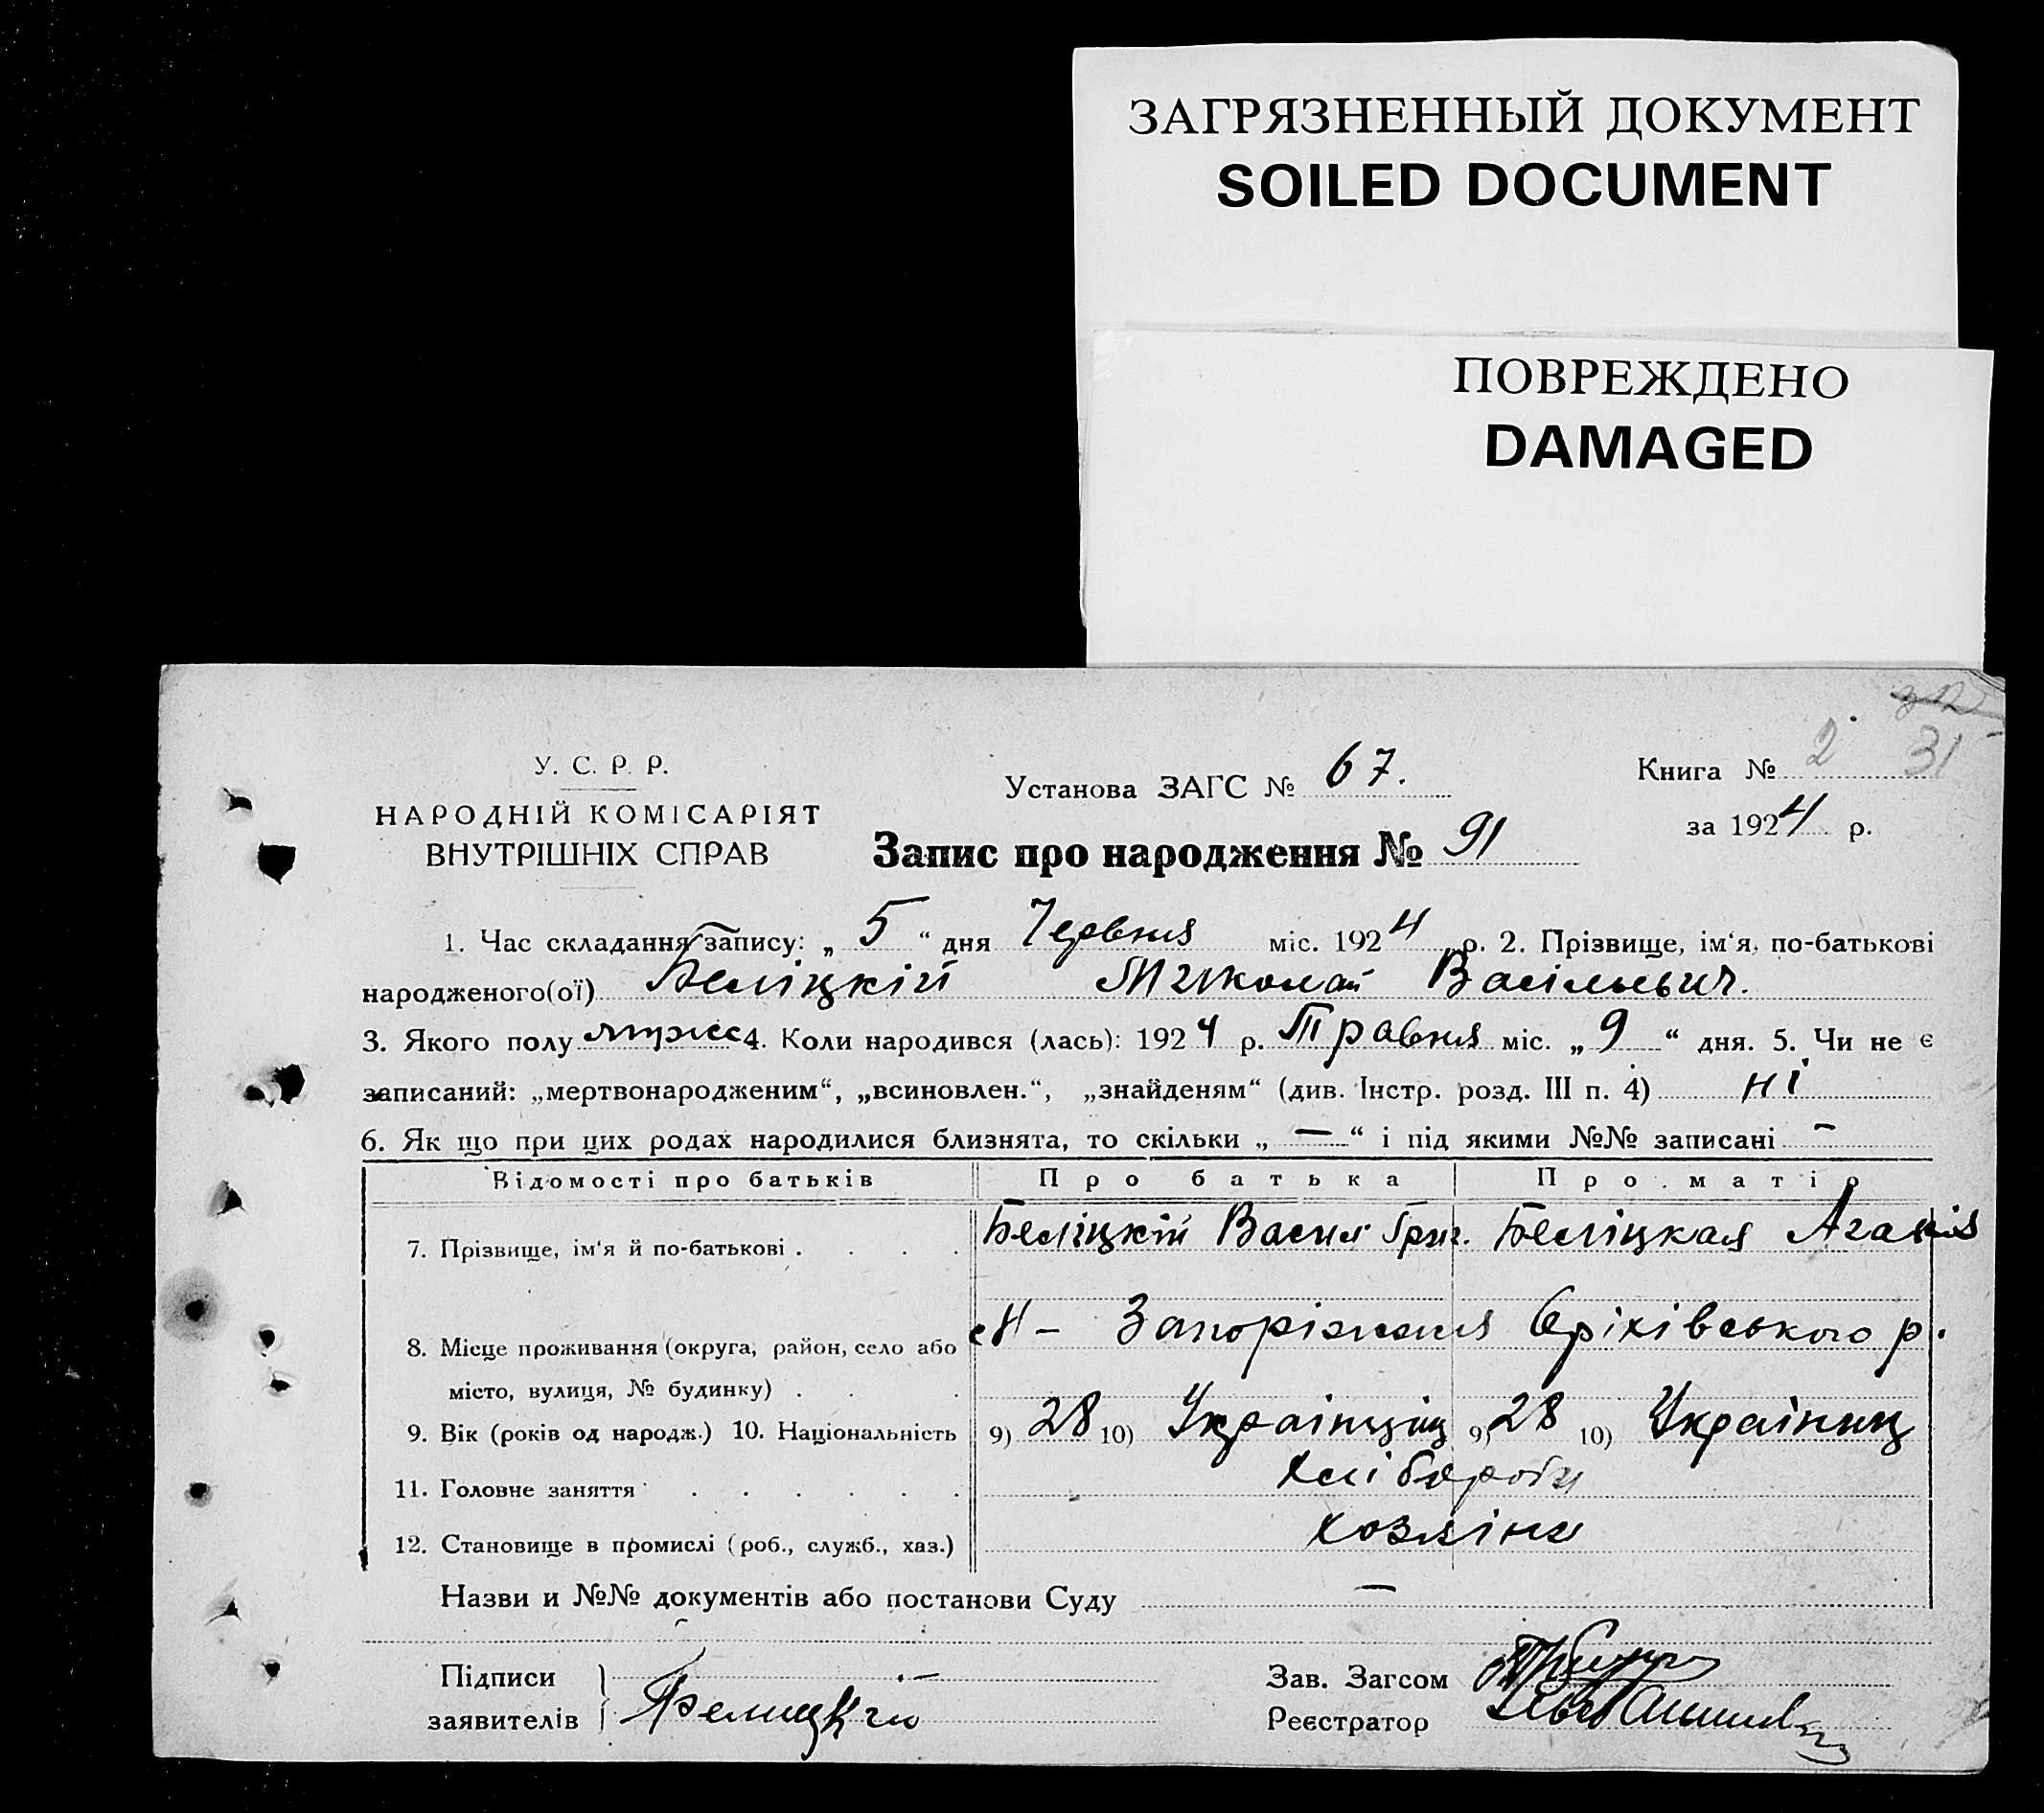 ЗАГРЯЗНЕННЫЙ ДОКУМЕНТ
SOILED DOCUMENT
ПОВРЕЖДЕНО
DAMAGED
32
31
У. С. Р. Р.
НАРОДНІЙ КОМІСАРІЯТ
ВНУТРІШНІХ СПРАВ
Установа ЗАГС № 67.
Книга № 2
за 1924 р.
Запис про народження № 91
1. Час складання запису: „ 5 “ дня Червня міс. 1924 р. 2. Прізвище, ім‘я, по-батькові
народженого(ої) Беліцкій Миколай Васільевич.
3. Якого полу муж 4. Коли народився (лась): 1924 р. Травня міс. „ 9 “ дня. 5. Чи не є
записаний: „мертвонародженим“, „всиновлен.“, „знайденям“ (див. Інстр. розд. III п. 4) ні
6. Як що при цих родах народилися близнята, то скільки „ — “ і під якими №№ записані —
Відомості про батьків Про батька Про матір
7. Прізвище, ім‘я й по-батькові . . . . Беліцкій Васил Григ. Беліцкая
8. Місце проживання (округа, район, село або Запоріжжя Оріхівського р.
місто, вулиця, № будинку) . . .
9. Вік (років од народж.) 10. Національність 9) 28 10) Українціц 9) 28 10) Україниц
11. Головне заняття . . . . . . хлібороби
12. Становище в промислі (роб., служб., хаз.) хозяіни
Назви и №№ документів або постанови Суду —
Підписи
заявителів Белицкий
Зав. Загсом
Реєстратор